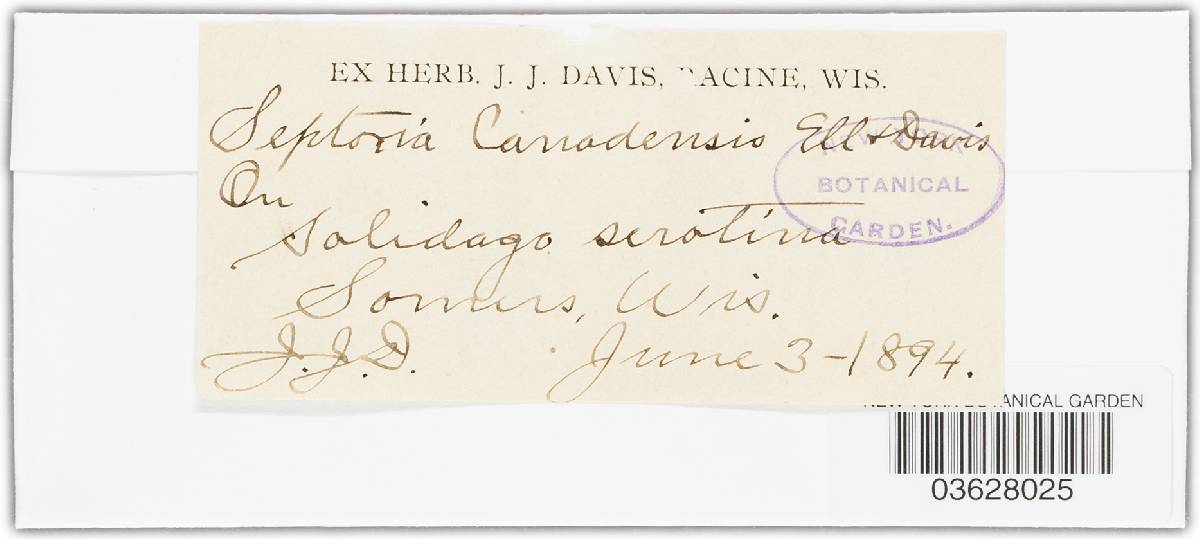 EX HERB. J. J. DAVIS, RACINE, WIS.
Septoria Canadensis Ell & Davis
On
Solidago serotina
Somers, Wis.
J.J.D. June 3-1894.
NEW YORK
BOTANICAL
GARDEN.
NEW YORK BOTANICAL GARDEN
03628025